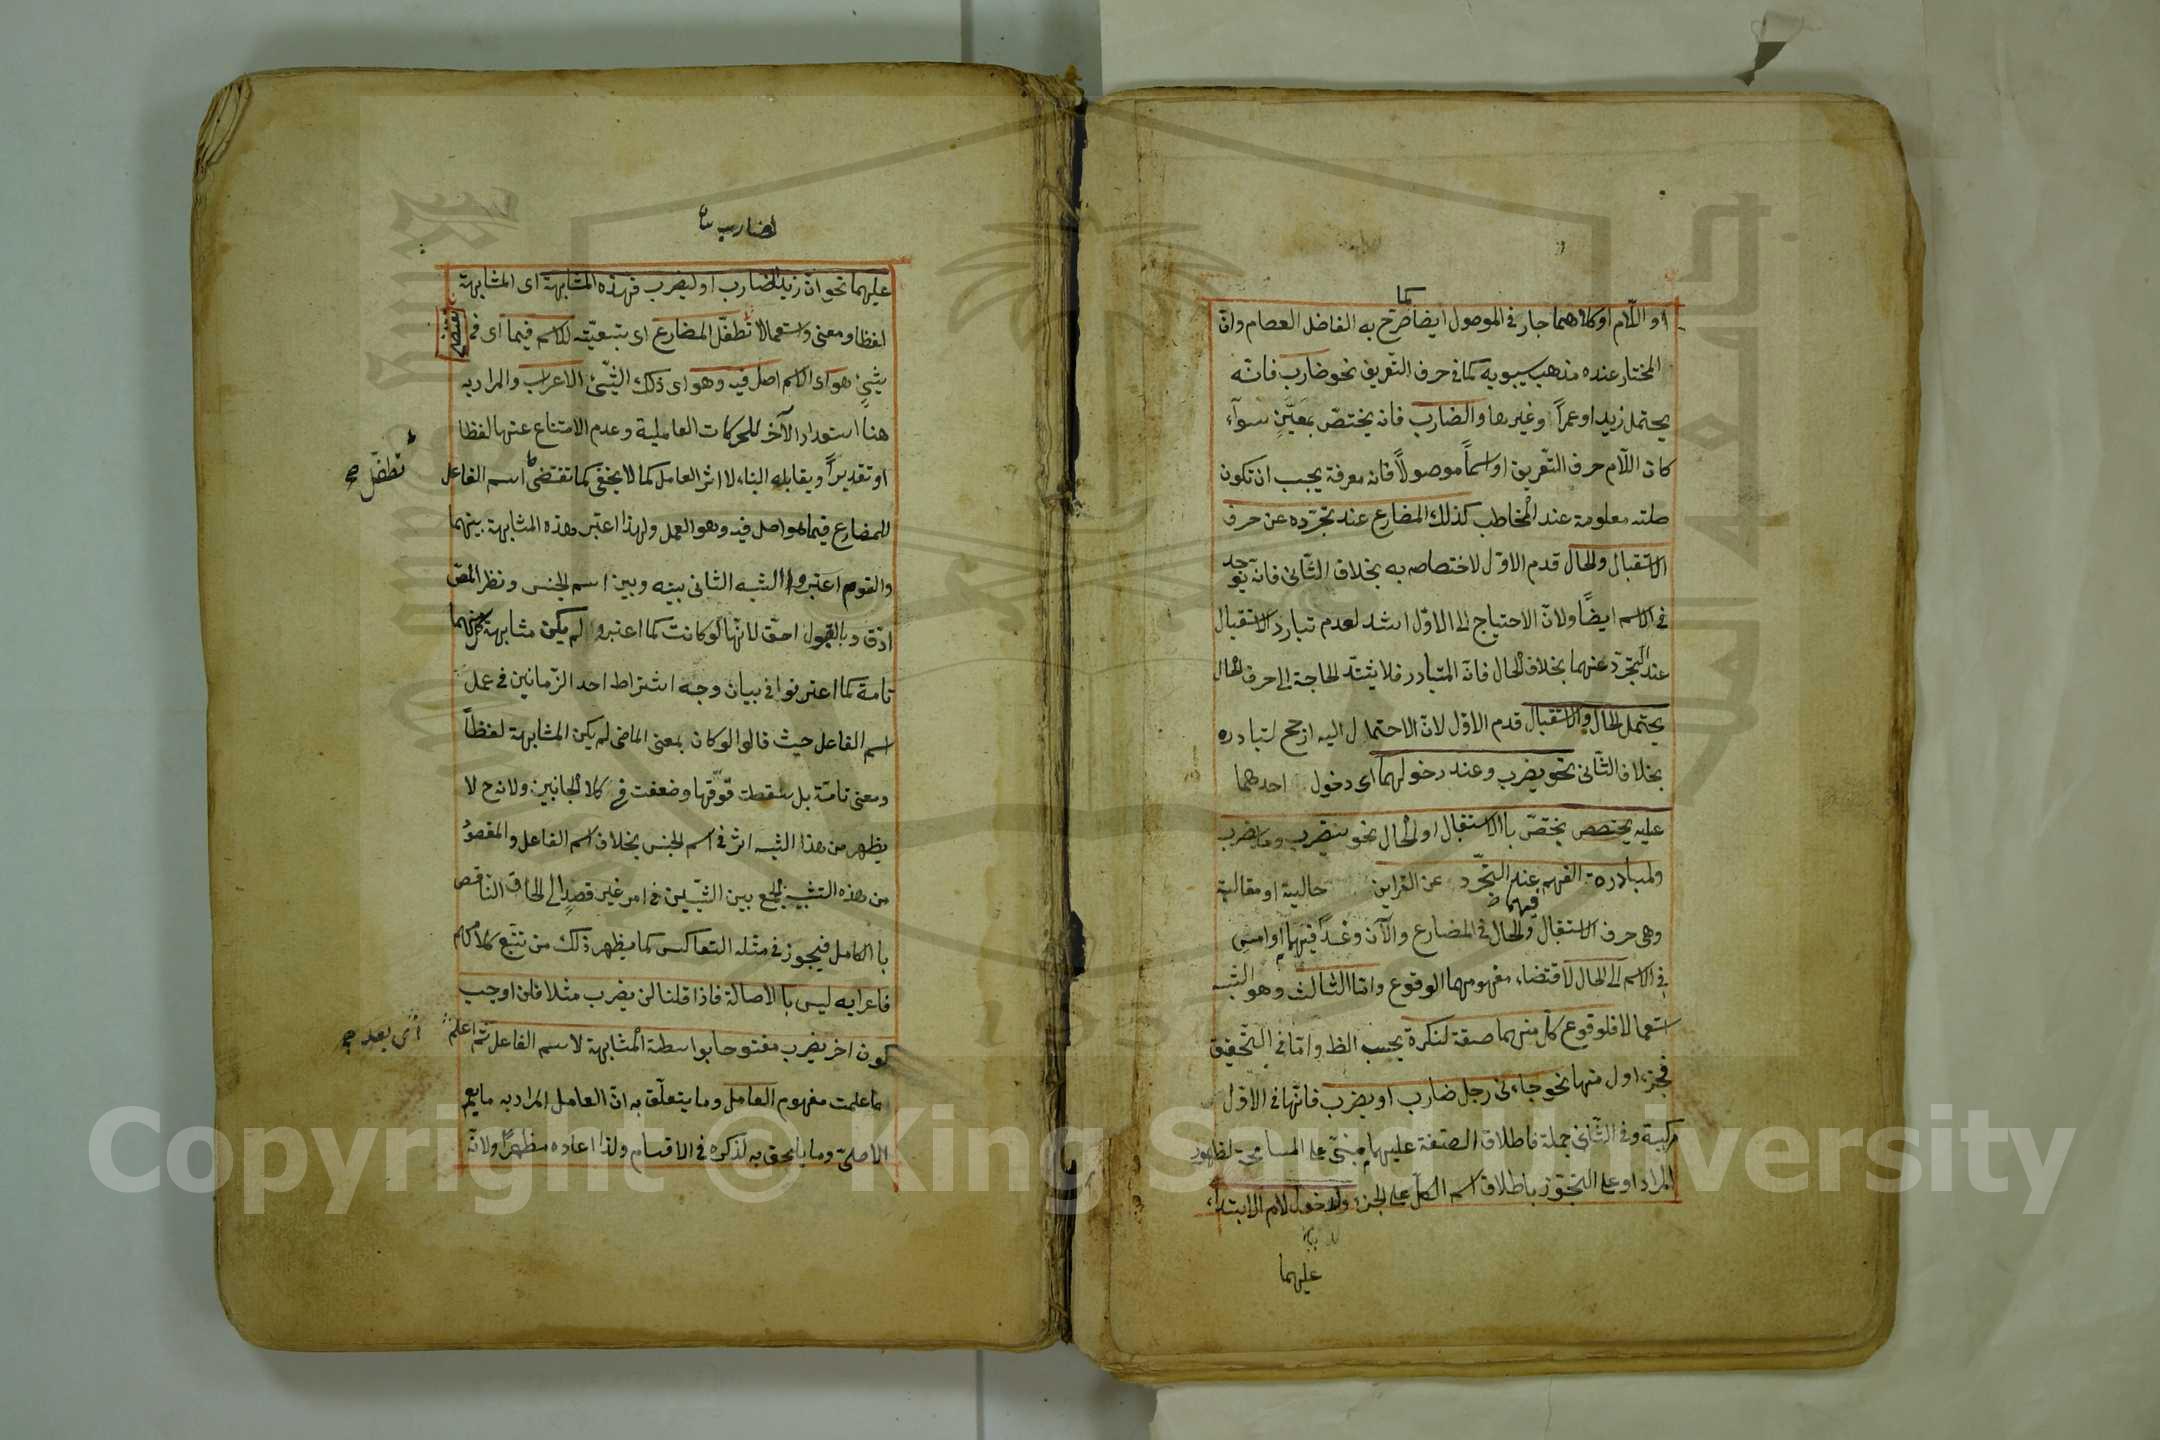 كما
او اللّام او كلاهما جار في الموصول ايضا صرّح به الفاضل العصام وانّ
المختار عنده مذهب سيبويه كما في حرف التّعريف نحو ضارب فانّه
يحتمل زيدا وعمرا وغيرهما والضارب فانه يختصّ بمعيّن سوآء
كان اللّام حرف التّعريف او اسماً موصولاً فانه معرفة يجب ان تكون
صلته معلومة عند المخاطب كذلك المضارع عند تجرّده عن حرف
الاستقبال والحال قدم الاوّل لاختصاصه به بخلاف الثّاني فانّه يوجد
في الاسم ايضًا ولانّ الاحتياج الى الاوّل اشد لعدم تبادر الاستقبال
عند التجرّد عنهما بخلاف الحال فانّه المتبادر فلا يشتدّ الحاجة الى حرف الحال
يحتمل الحال والاستقبال قدم الاوّل لانّ الاحتمال اليه ارجح لتبادره
بخلاف الثّاني نحو يضرب وعند دخولهما اى دخول احدهما
عليه يختصص يختصّ بالاستقبال او الحال نحو سيضرب وما يضرب
ولمبادرة الفهم عند التجرّد عن القراين حالية او مقالية
فيهما
وهى حرف الاستقبال والحال في المضارع والآن وغداً فيهما او امس
في الاسم الى الحال لاقتضاء مفهومهما الوقوع وامّا الثالث وهو الشبه
استعمالا فلوقوع كلّ منهما صفة لنكرة بحسب الظ وامّا في التّحقيق
فجزء اول منها نحو جاءنى رجل ضارب او يضرب فانّها في الاوّل
مركبة وفي الثّاني جملة فاطلاق الصّفة عليهما مبنىّ على المسامحة لظهور
المراد او على التجوّز باطلاق اسم الكلّ على الجزء ولدخول لام الابتداء
عليهما
لضارب
عليهما نحو انّ زيدا لضارب او ليضرب فهذه المشابهة اى المشابهة
لفظا ومعنى واستعمالا تطفّل المضارع اى بتبعيّته للاسم فيما اى في
شئ هو اى الاسم اصل فيه وهو اى ذلك الشّئ الاعراب والمراد به
هنا استعداد الآخر للحركات العاملية وعدم الامتناع عنها لفظا
او تقديراً ويقابله البناء لا اثر العامل كما لا يخفى كما تقتضى اسم الفاعل
تطفّل
للمضارع فيما هو اصل فيه وهو العمل ولهذا اعتبر هذه المشابهة بينهما
والقوم اعتبروا الشبه الثانى بينه وبين اسم الجنس ونظر المص
ادق وبالقبول احقّ لانّها لو كانت كما اعتبروا لم يكن مشابهة بينهما
تامة كما اعترفوا في بيان وجه اشتراط احد الزّمانين في عمل
اسم الفاعل حيث قالوا لو كان بمعنى الماضى لم يكن المشابهة لفظاً
ومعنى تامّة بل سقطت قوّتها وضعفت في كلا الجانبين ولانه ح لا
يظهر من هذا الشبه اثر في اسم الجنس بخلاف اسم الفاعل والمقصود
من هذه التشبيه الجمع بين الشّيئين في امر غير قصدٍ الى الحاق الناقص
بالكامل فيجوز في مثله التعاكس كما يظهر ذلك من تتبّع كلامهم
فاعرابه ليس بالاصالة فاذا قلنا لن يضرب مثلا فلن اوجب
كون اخر يضرب مفتوحا بواسطة المشابهة لاسم الفاعل ثمّ اعلم
اى بعد
ما علمت مفهوم العامل وما يتعلّق به انّ العامل المراد به ما يعم
الاصلىّ وما يلحق به لذكره في الاقسام ولذا اعاده مظهرًا ولانّه